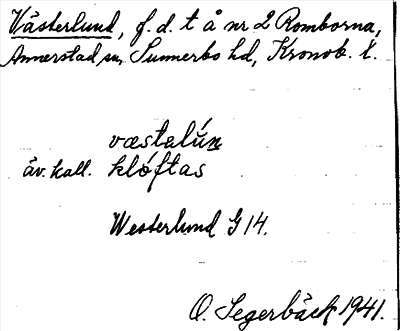 Västerlund, f.d. t å nr 2 Romborna,
Annerstad sn, Sunnerbo hd, Kronob. l.
væstalún
äv. kall. klóftas
Westerlund G 14.
O. Segerbäck 1941.